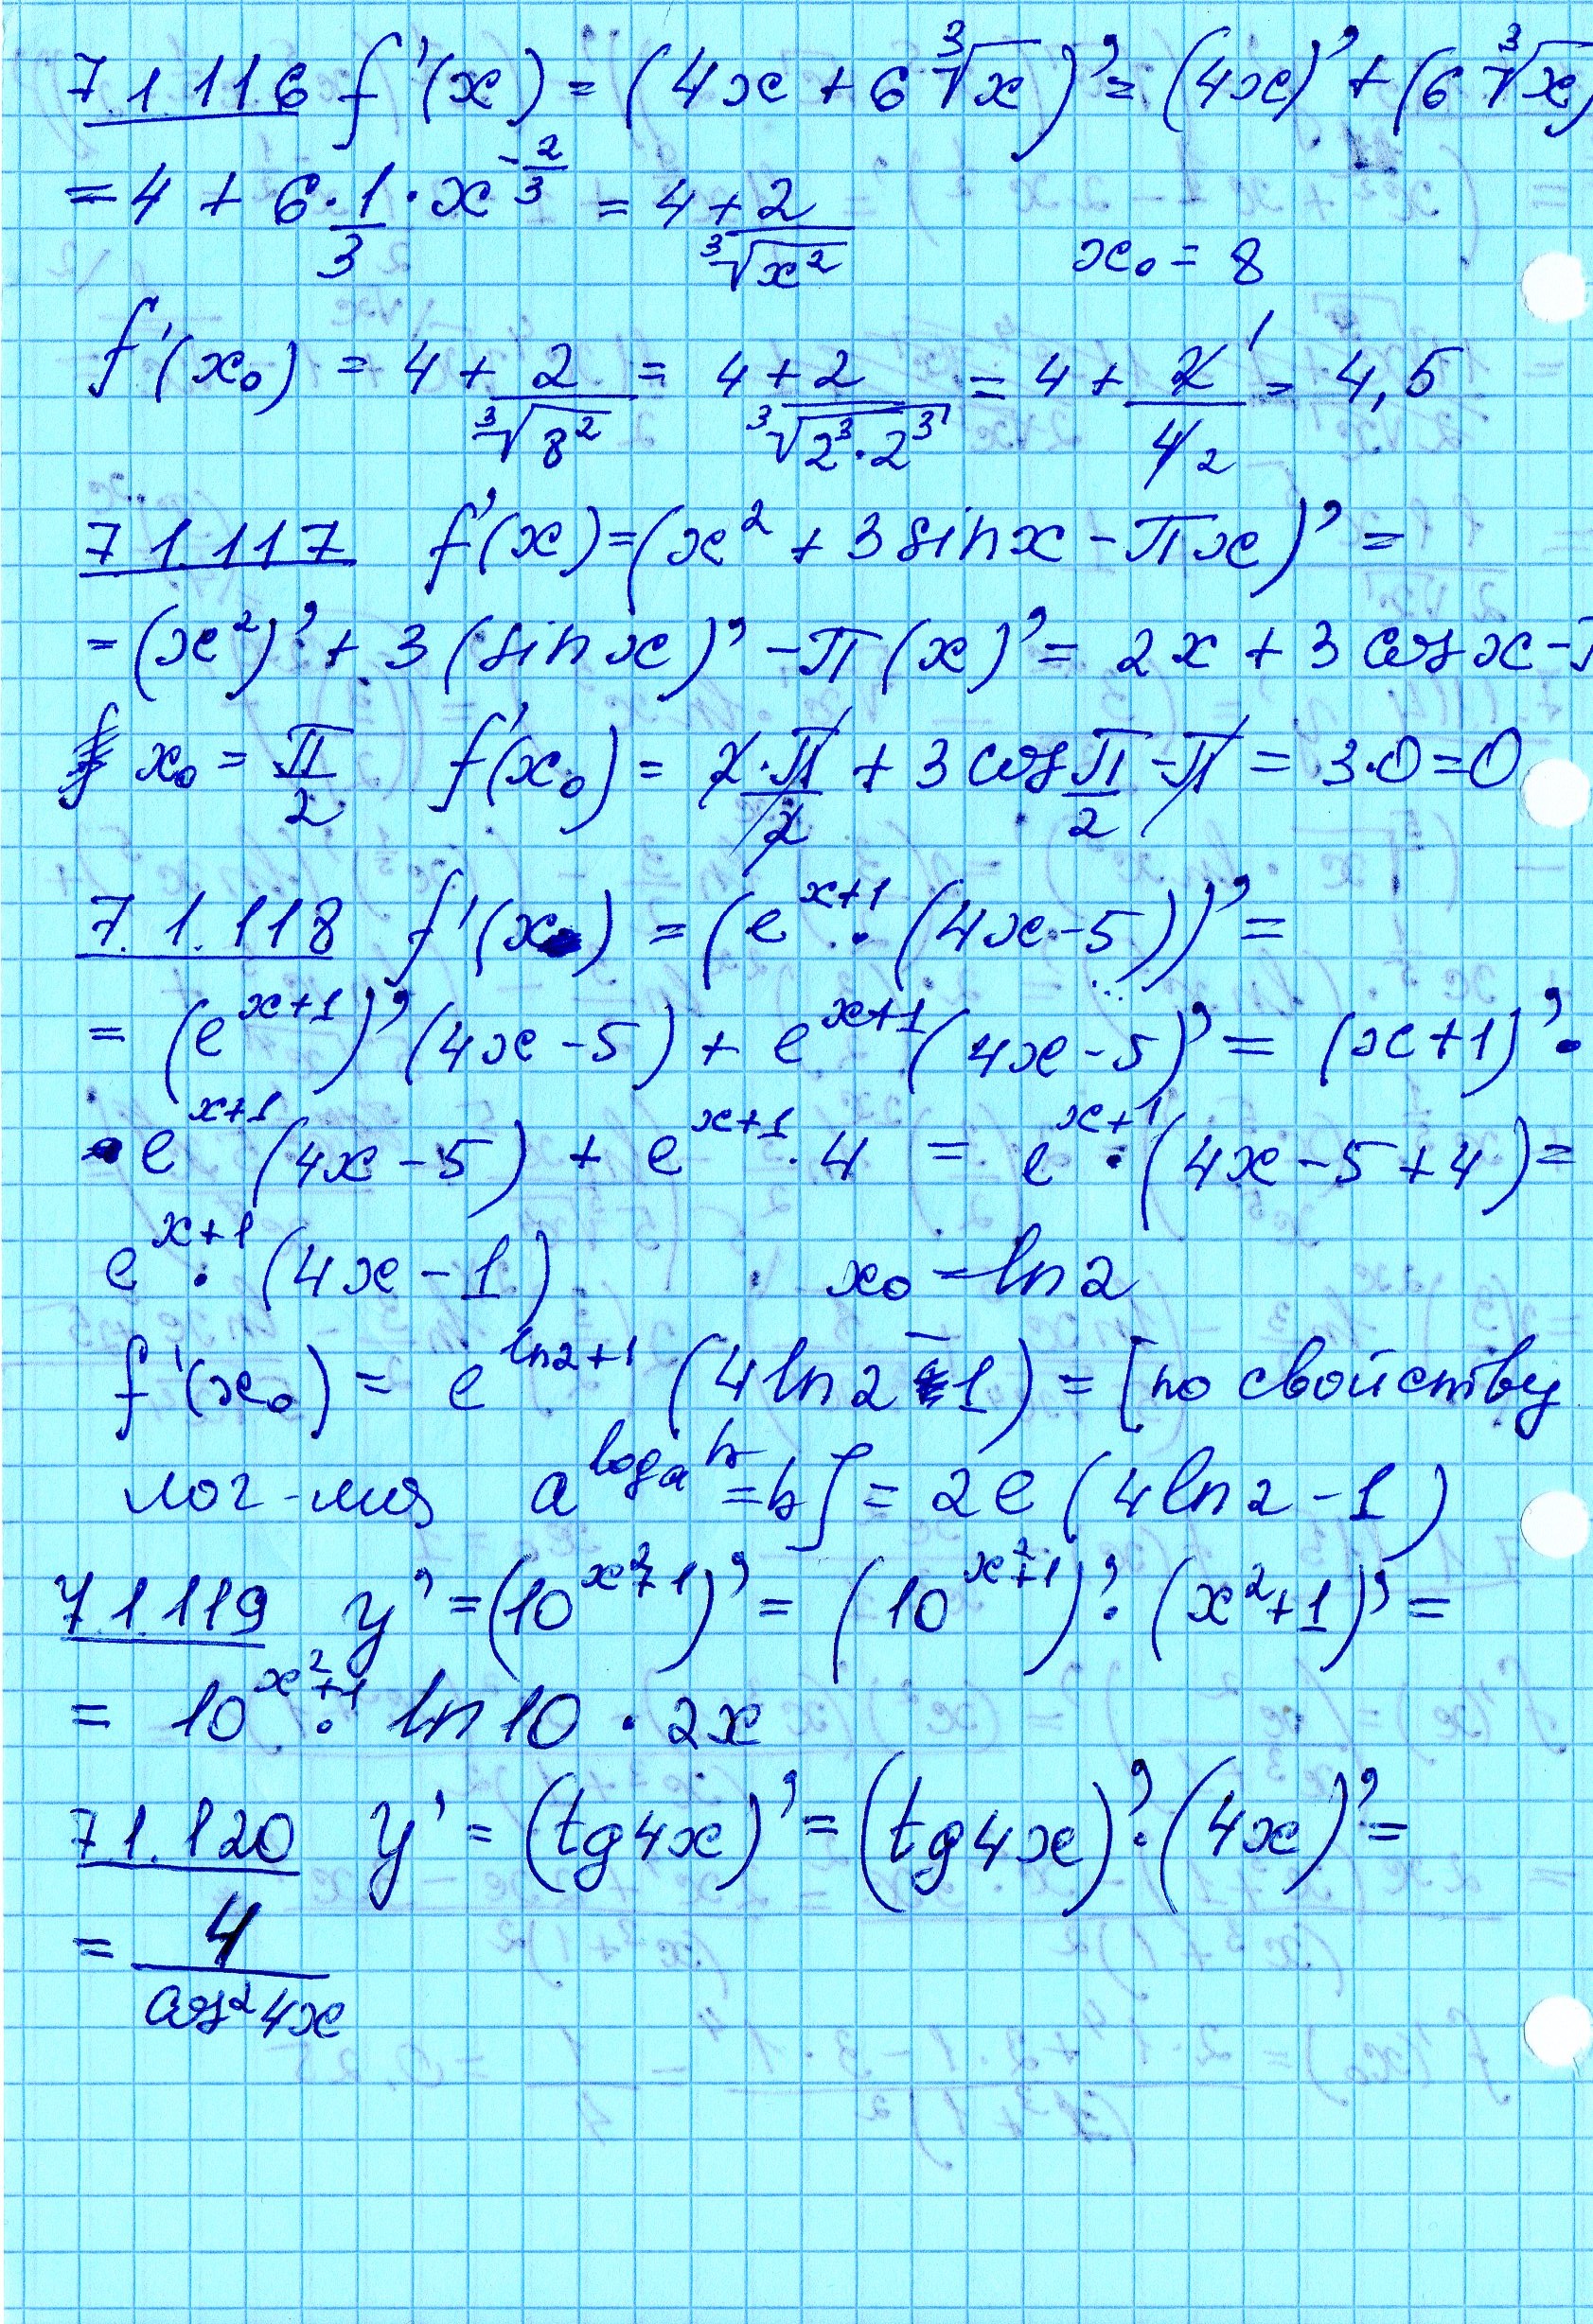 7.1.116 f'(x) = (4x + 6∛x)' = (4x)' + (6∛x)
= 4 + 6·1/3·x^(-2/3) = 4 + 2/∛x² x₀ = 8
f'(x₀) = 4 + 2/∛8² = 4 + 2/∛(2³·2³) = 4 + 2/4 = 4,5
7.1.117 f'(x) = (x² + 3sinx - πx)' =
= (x²)' + 3(sinx)' - π(x)' = 2x + 3cosx - π
x₀ = π/2 f'(x₀) = 2·π/2 + 3cos π/2 - π = 3·0 = 0
7.1.118 f'(x) = (e^(x+1)·(4x-5))' =
= (e^(x+1))'(4x-5) + e^(x+1)(4x-5)' = (x+1)'·
·e^(x+1)(4x-5) + e^(x+1)·4 = e^(x+1)·(4x-5+4) =
e^(x+1)·(4x-1) x₀ = ln2
f'(x₀) = e^(ln2+1)(4ln2-1) = [по свойству
лог-мия a^(logₐb) = b] = 2e(4ln2-1)
7.1.119 y' = (10^(x²+1))' = (10^(x²+1))'·(x²+1)' =
= 10^(x²+1)·ln10·2x
7.1.120 y' = (tg4x)' = (tg4x)'·(4x)' =
= 4/cos²4x